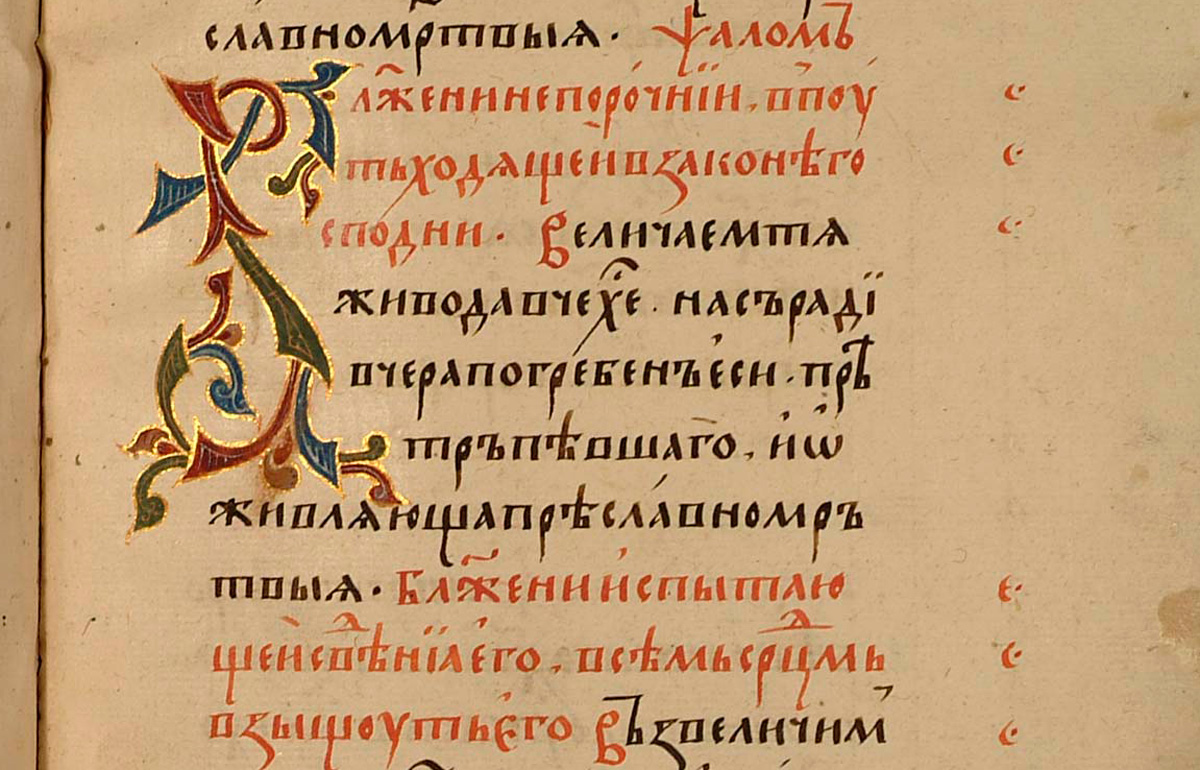 славномртвыѧ · ѱалом̾
Бл҃жени непорочнїи, в̾поу
тьходѧщеи взаконѣго
сподни · Величаемтѧ
живодавчех҃е . насъ радї
вчерапогребенъ еси . прѣ
тръпѣвшаго, иѡ
живлѧюща прѣславномръ
твыѧ · Бл҃жени испытаю
щеи свⷣѣнїа его, всѣмь срцⷣмь
взыщоуть єго Въ звеличим̾